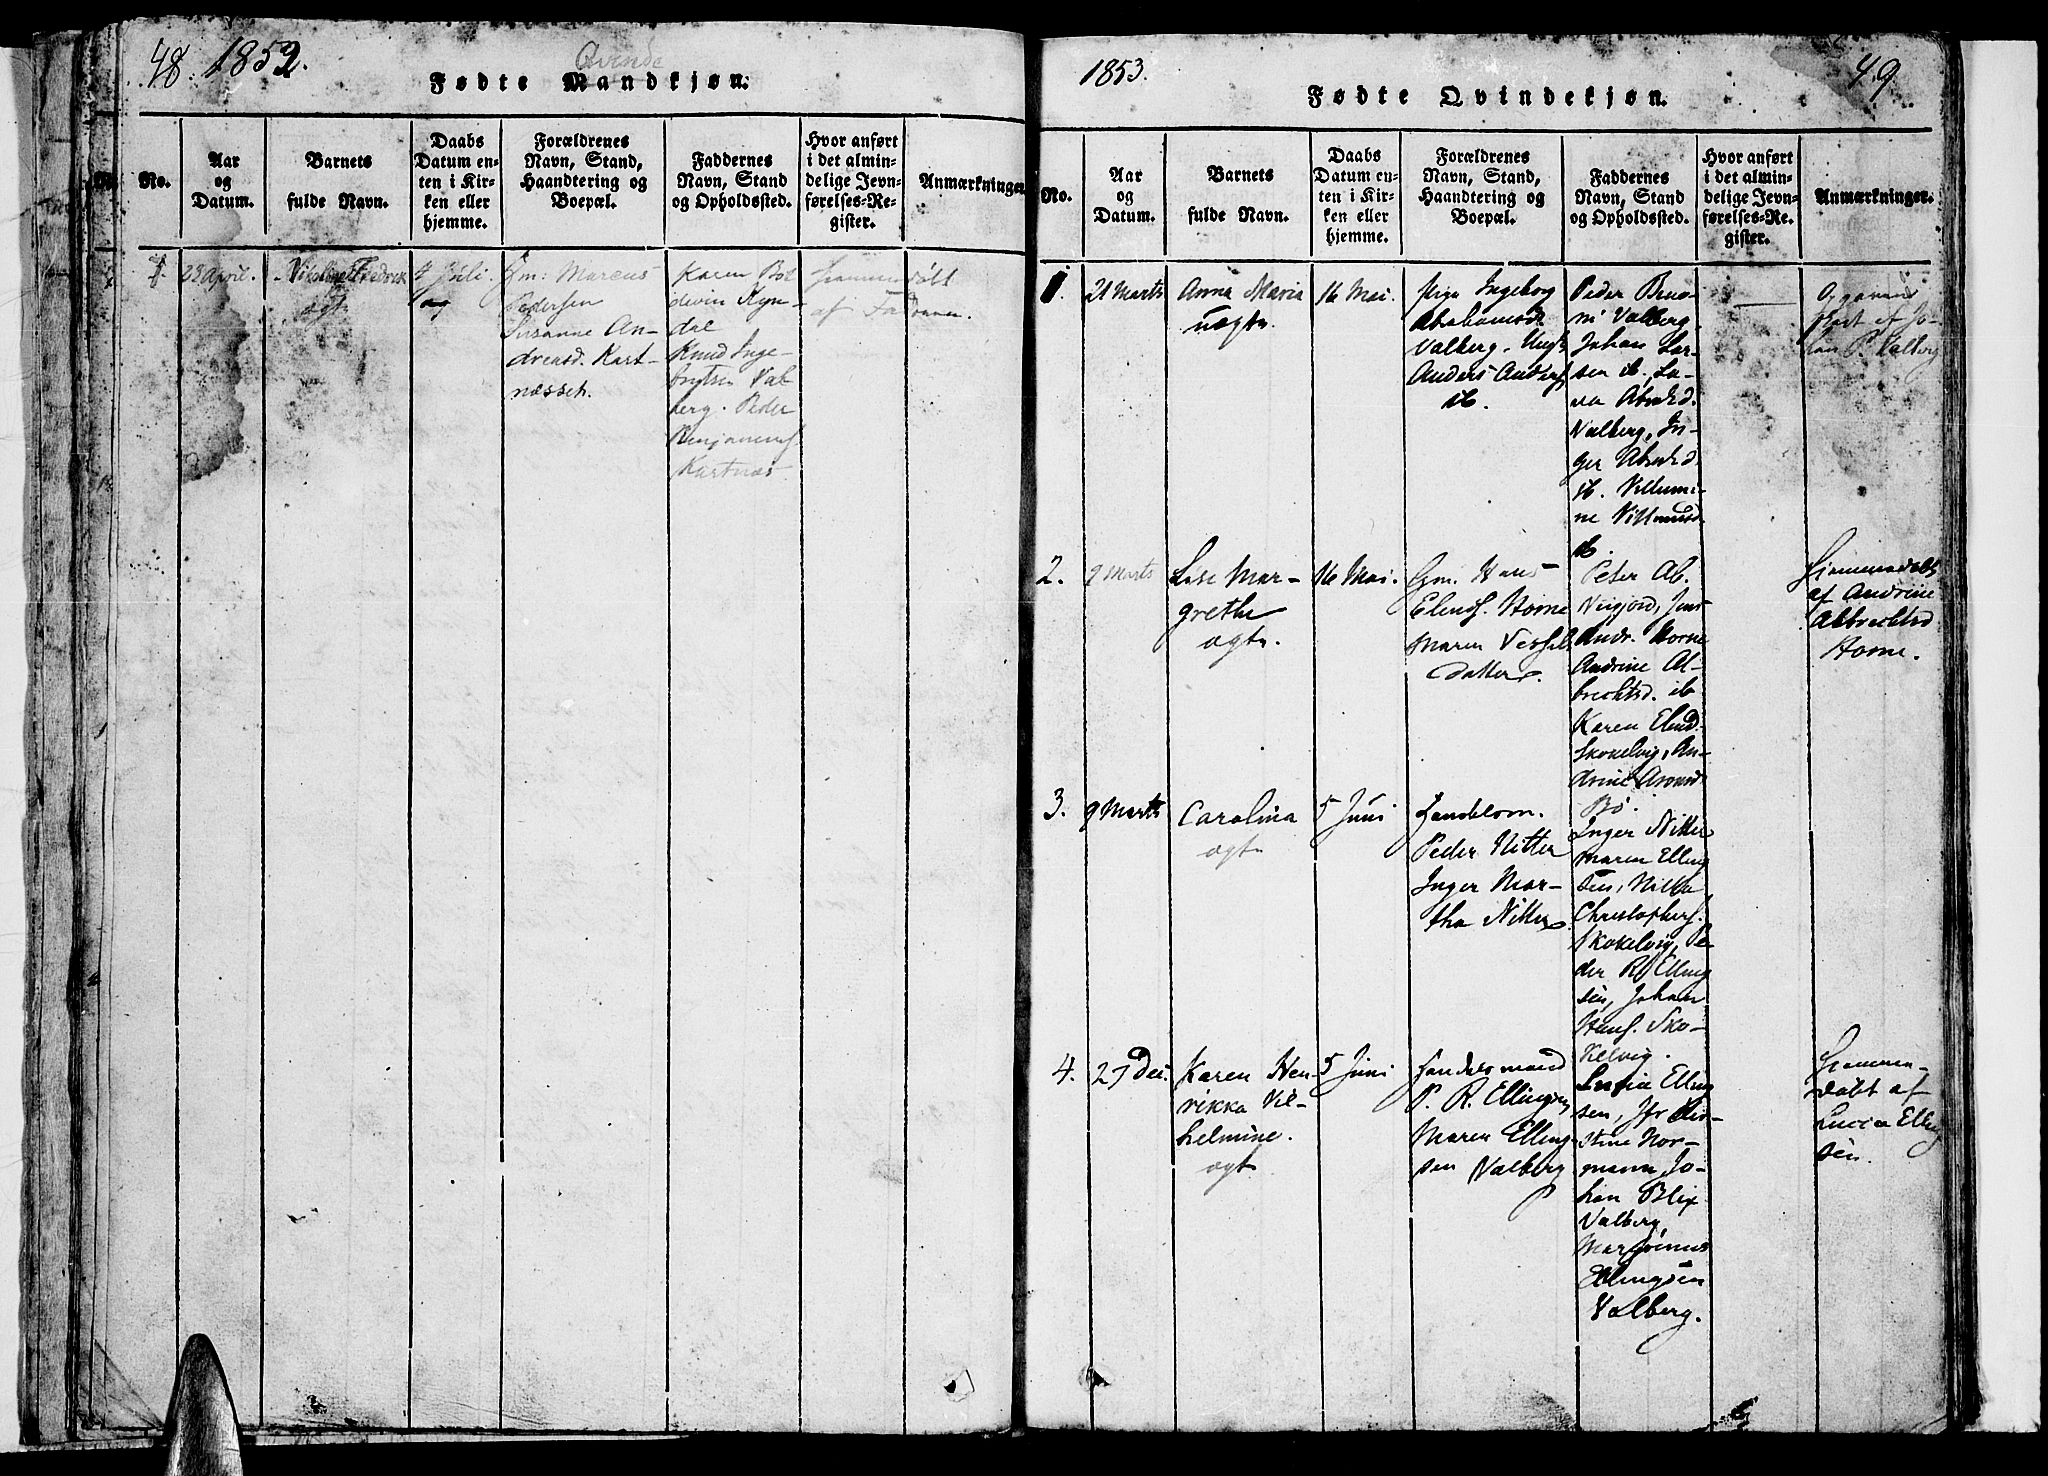 48. 1852.
Qvinde
Fødte Mandkjøn.
No.
Aar
og
Datum.
Barnets
fulde Navn.
Daabs
Datum en-
ten i Kir-
ken eller
hjemme.
Forældrenes
Navn, Stand,
Haandtering og
Boepæl.
Faddernes
Navn, Stand
og Opholdssted.
Hvor anført
i det almin-
delige Jevn-
førelses-Re-
gister.
Anmærkninger
1
23 April.
Fredrik
ægte
4 Juli.
Gm: Marcus
Pedersen
Susanne An-
drensd. Kart-
næsset.
Karen Bol
devin
Knud Inge-
brigtsen Val-
berg. Peder
Benjamins.
Kartnæs
Hjemmedøbt
af Faderen.
1853.
49
Fødte Qvindekjøn.
No.
Aar
og
Datum.
Barnets
fulde Navn.
Daabs
Datum en-
ten i Kir-
ken eller
hjemme.
Forældrenes
Navn, Stand,
Haandtering og
Boepæl.
Faddernes
Navn, Stand
og Opholdssted.
Hvor anført
i det almin-
delige Jevn-
førelses-Re-
gister.
Anmærkninger.
1.
21 Marts
Anna Maria
uægte.
16 Mai.
Pige Ingeborg
Abrahamsd.
Valberg. Ungk
Anders Anders.
ib.
Peder Beno-
ni Valberg,
Johan Lar-
sen ib, La-
va Abrahd.
Valberg, In-
ger Abrahd.
ib. Villumi-
ne
ib.
Opgaven
af Jo-
han P. Valberg
2.
9 Marts
Lise Mar-
grethe
ægte.
16 Mai.
Gm. Hans
Elends. Horne
Maren Vessel
datter.
Peter Ab.
Jens
Andr. Horne
Andrine Al-
brechtsd. ib
Karen Elend.
Skokelvig, An-
drine Aronsd
Bø.
Hjemmedøbt
af Andrine
Albrechtsd
Horne.
3.
9 Marts
Carolina
ægte
5 Juni
Handelsm.
Peder Nitter
Inger Mar-
tha Nitter.
Inger Nitter
Maren Elling
sen, Nilla
Christophers.
Skokelvig, Pe
der R. Elling
sen, Johan
Hans. Sko-
kelvig.
4.
27 Dec.
Karen Hen-
rikka Vil-
helmine.
ægte
5 Juni
Handelsmand
P. R. Ellingsen
Maren Elling-
sen Valberg
Lucia Elling
sen, Jfr Chri-
stine Nor-
mann, Jo-
han Blix
Valberg,
Ellingsen
Valberg.
Hjemme-
døbt af
Lucia Elling
sen.